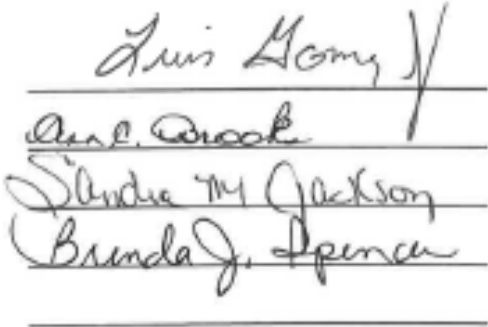 Luis Gomez
Ann C. Brook
Sandra M Jackson
Brenda J. Spencer